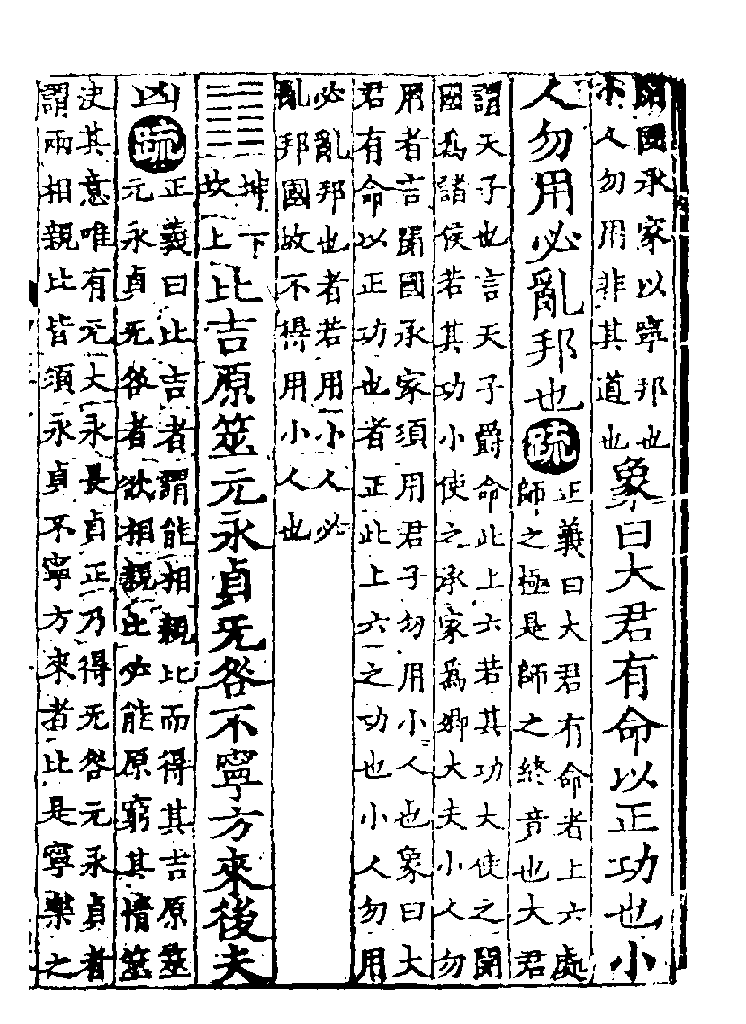 開國承家以寧邦也
小人勿用非其道也
象曰大君有命以正功也小
人勿用必亂邦也疏
正義曰大君有命者上六處
師之極是師之終竟也大君
謂天子也言天子爵命此上六若其功大使之開
國爲諸侯若其功小使之承家爲卿大夫小人勿
用者言開國承家須用君子勿用小人也象曰大
君有命以正功也者正此上六之功也小人勿用
必亂邦也者若用小人必
亂邦國故不得用小人也
䷇
坤下
坎上
比吉原筮元永貞无咎不寧方來後夫
凶疏
正義曰比吉者謂能相親比而得其吉原筮
元永貞无咎者欲相親比必能原窮其情筮
決其意唯有元大永長貞正乃得无咎元永貞者
謂兩相親比皆須永貞不寧方來者比是寧樂之